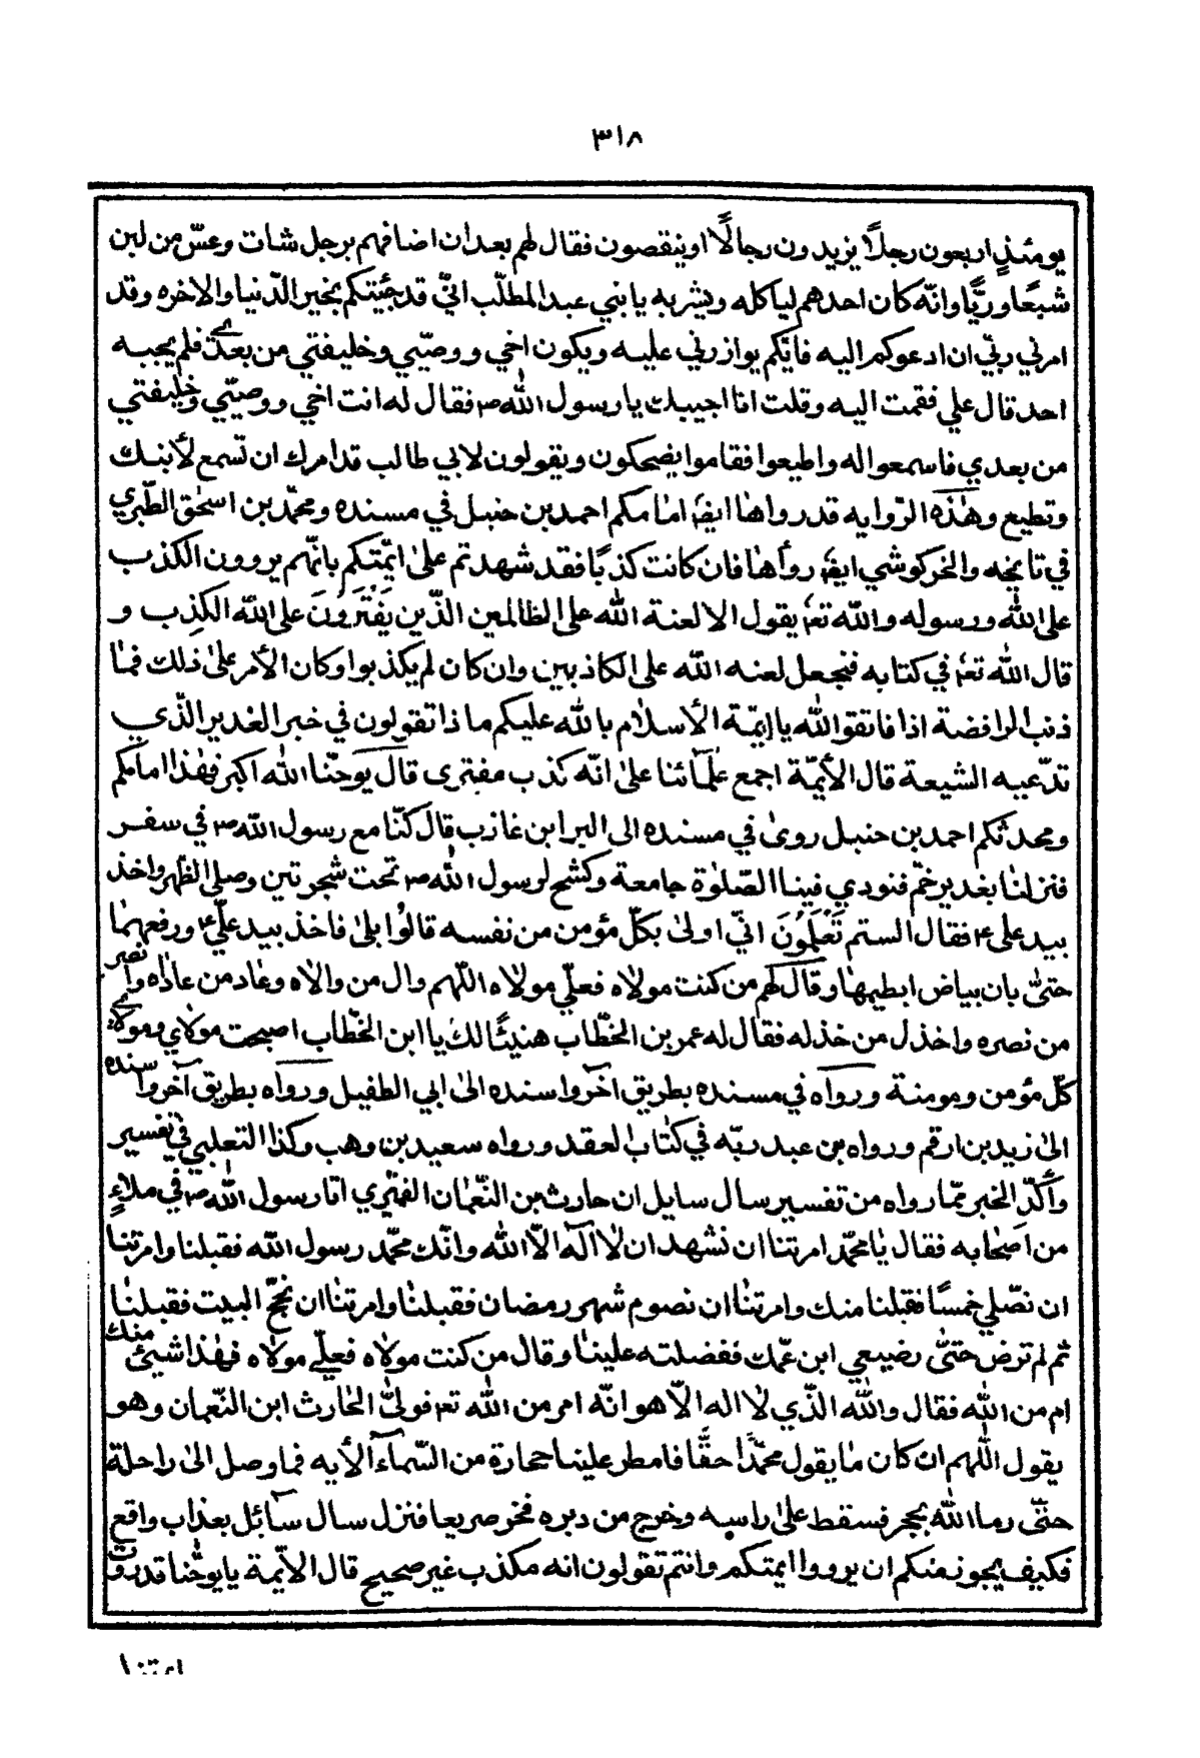 ٣١٨
يومئذٍ اربعون رجلاً يزيدون رجالاً او ينقصون فقال لهم بعد ان اضافهم برجل شات وعسّ من لبن
شبعًا وريًّا وانّه كان احدهم لياكله ويشربه يا بني عبد المطلّب انّي قد جئتكم بخير الدّنيا والاخره وقد
امرني ربّي ان ادعوكم اليه فايّكم يوازرني عليه ويكون اخي ووصيّي وخليفتي من بعدي فلم يجبه
احد قال علي فقمت اليه وقلت انا اجيبك يا رسول الله ص فقال له انت اخي ووصيّي وخليفتي
من بعدي فاسمعوا له واطيعوا فقاموا يضحكون ويقولون لابي طالب قد امرك ان تسمع لأبنك
وتطيع وهذه الرّوايه قد رواها ايضا امامكم احمد بن حنبل في مسنده ومحمّد بن اسحٰق الطّبري
في تاريخه والخركوشي ايضا رواها فان كانت كذبًا فقد شهدتم علىٰ ائمّتكم بانّهم يروون الكذب
على الله ورسوله والله تعا يقول الا لعنة الله على الظالمين الذّين يَفْتَرُونَ على الله الكَذِب و
قال الله تعا في كتابه فنجعل لعنه الله على الكاذبين وان كان لم يكذبوا وكان الأمر علىٰ ذلك فما
ذنب الرافضة اذا فاتقوا الله يا ايمّة الأسلام بالله عليكم ما ذا تقولون في خبر الغدير الذّي
تدّعيه الشيعة قال الأئمّة اجمع علمآئنا علىٰ انّه كذب مفترى قال يوحنّا الله اكبر فهٰذا امامكم
ومحدثكم احمد بن حنبل روىٰ في مسنده الى البرا ابن عازب قال كنّا مع رسول الله ص في سفر
فنزلنا بغدير خمّ فنودي فينا الصّلوٰة جامعة وكشح لرسول الله ص تحت شجرتين وصلى الظهر واخذ
بيد علي ع فقال الستم تَعْلَمُونَ انّي اولىٰ بكلّ مؤمن من نفسه قالوا بلىٰ فاخذ بيد عليّ ع ورفعهما
حتىّٰ بان بياض ابطيهما وقال لهم من كنت مولاه فعليّ مولاه اللّهم وال من والاه وعاد من عاداه وانصر
من نصره واخذل من خذله فقال له عمر بن الخطّاب هنيئًا لك يا ابن الخطّاب اصبحت مولاي ومولا
كلّ مؤمن ومومنة ورواه في مسنده بطريق آخر واسنده الىٰ ابي الطفيل ورواه بطريق آخر واسنده
الىٰ زيد بن ارقم ورواه بن عبد ربّه في كتاب العقد ورواه سعيد بن وهب وكذا التعلبي في تفسير
وأكّد الخبر ممّا رواه من تفسير سال سايل ان حارث بن النّعمان الفهري اتا رسول الله ص في ملاءٍ
من اصحابه فقال يا محمّد امرتنا ان نشهد ان لا آله الاّ الله وانّك محمّد رسول الله فقبلنا وامرتنا
ان نصّلي خمسًا فقبلنا منك وامرتنا ان نصوم شهر رمضان فقبلنا وامرتنا ان نحجّ البيت فقبلنا
ثم لم ترض حتىّٰ رضيعي ابن عمّك ففضلته علينا وقال من كنت مولاه فعليّ مولاه فهٰذا شيئ منك
ام من الله فقال والله الذّي لا اله الاّ هو انّه امر من الله تعا فولىّٰ الحارث ابن النّعمان وهو
يقول اللّهم ان كان ما يقول محمّدًا حقًّا فامطر علينا حجارة من السّمآء الأيه فما وصل الىٰ راحلة
حتىّٰ رماه الله بحجر فسقط علىٰ راسيه وخرج من دبره فخر صريعا فنزل سال سآئل بعذاب واقع
فكيف يجوز منكم ان يرووا ايمتكم وانتم تقولون انه مكذب غير صحيح قال الأئمة يا يوحّنا قد روت